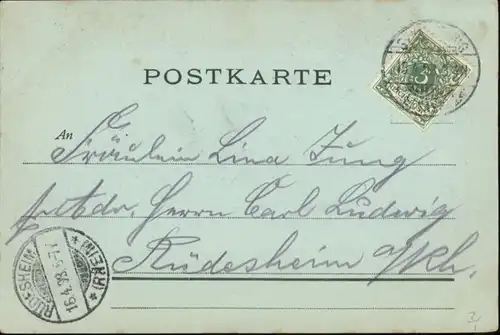 POSTKARTE
3
An
Fräulein Lina Jung
Adr. Herrn Carl Ludwig
Rüdesheim a/Rh.
RÜDESHEIM
16.4.98.
* (RHEIN) *
3,